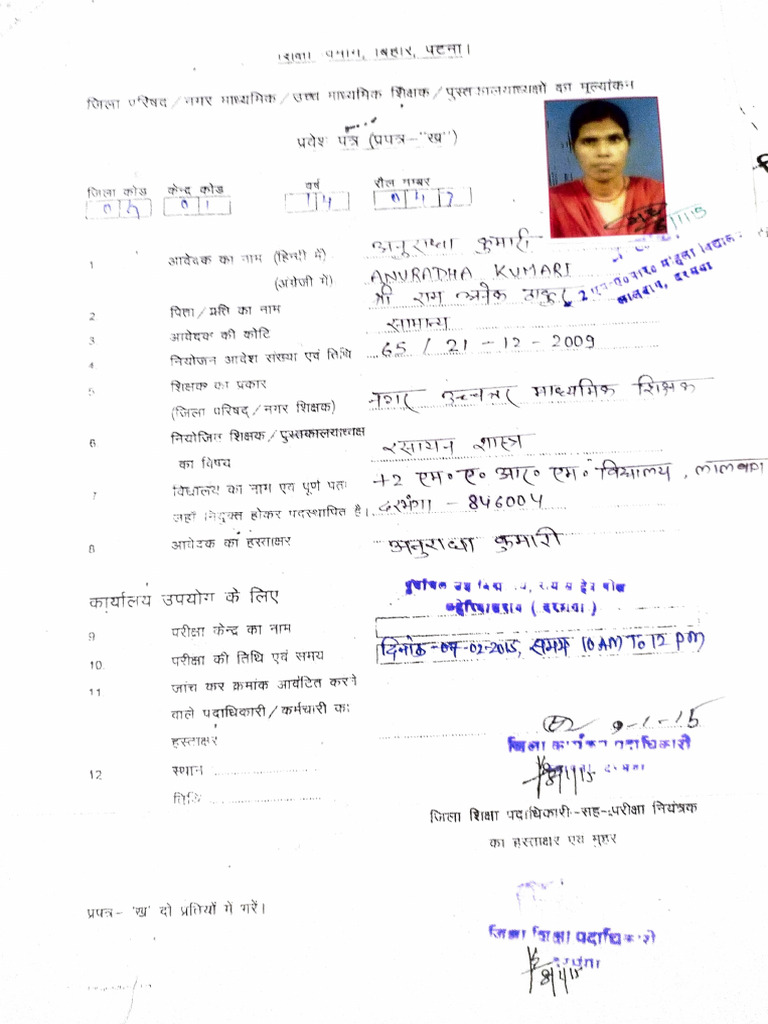 शिक्षा विभाग, बिहार, पटना।
जिला परिषद/नगर माध्यमिक/उच्च माध्यमिक शिक्षक/पुस्तकालयाध्यक्षों का मूल्यांकन
प्रवेश पत्र (प्रपत्र-"ख")
जिला कोड केन्द्र कोड वर्ष रौल नम्बर
05 01 14 047
1 आवेदक का नाम (हिन्दी में) अनुराधा कुमारी
(अंग्रेजी में) ANURADHA KUMARI
2 पिता/पति का नाम श्री राम
3 आवेदक की कोटि सामान्य
4 नियोजन आदेश संख्या एवं तिथि 65/21-12-2009
5 शिक्षक का प्रकार नगर उच्चतर माध्यमिक शिक्षक
(जिला परिषद/नगर शिक्षक)
6 नियोजित शिक्षक/पुस्तकालयाध्यक्ष रसायन शास्त्र
का विषय
7 विद्यालय का नाम एवं पूर्ण पता +2 एम॰ ए॰ आर॰ एम॰ विद्यालय, लालबाग
जहाँ नियुक्त होकर पदस्थापित है। दरभंगा - 846004
8 आवेदक का हस्ताक्षर अनुराधा कुमारी
कार्यालय उपयोग के लिए
9 परीक्षा केन्द्र का नाम
10. परीक्षा की तिथि एवं समय दिनांक-07-02-2015, समय 10 AM TO 12 PM
11 जांच कर क्रमांक आवंटित करने
वाले पदाधिकारी/कर्मचारी का
हस्ताक्षर 9-1-15
जिला कार्यक्रम पदाधिकारी
12 स्थान
8/1/15
तिथि
जिला शिक्षा पदाधिकारी-सह-परीक्षा नियंत्रक
का हस्ताक्षर एवं मुहर
प्रपत्र- 'ख' दो प्रतियों में भरें।
जिला शिक्षा पदाधिकारी
दरभंगा
8/1/15